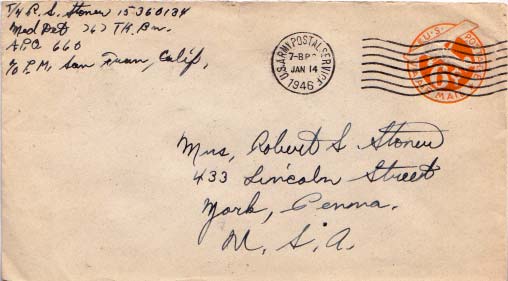 T/4 R. S. Stoner 15360134
Med Det 767 TK. Bn.
A.P.O. 660
c/o P.M. San Fran, Calif,
U.S. ARMY POSTAL SERVICE
JAN 14
1946
U.S. POSTAGE
VIA AIR MAIL
Mrs, Robert S Stoner
433 Lincoln Street
York, Penna.
U. S. A.